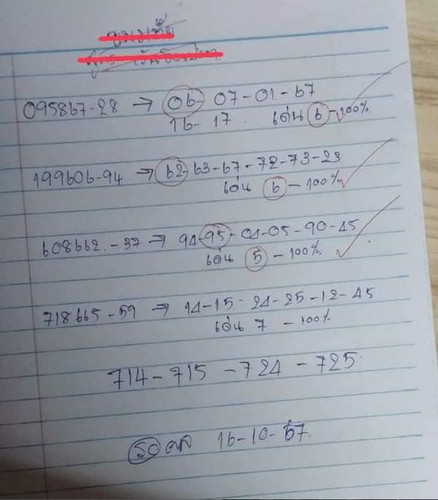 095867-28 → 06- 07-01-67
16-17 เด่น 6-100%
199606-94 → 62-63-67-72-73-23
เด่น 6-100%
608662-37 → 94-95-04-05-90-45
เด่น 5-100%
718665-59 → 14-15-24-25-12-45
เด่น 7-100%
714-715-724-725
16-10-67